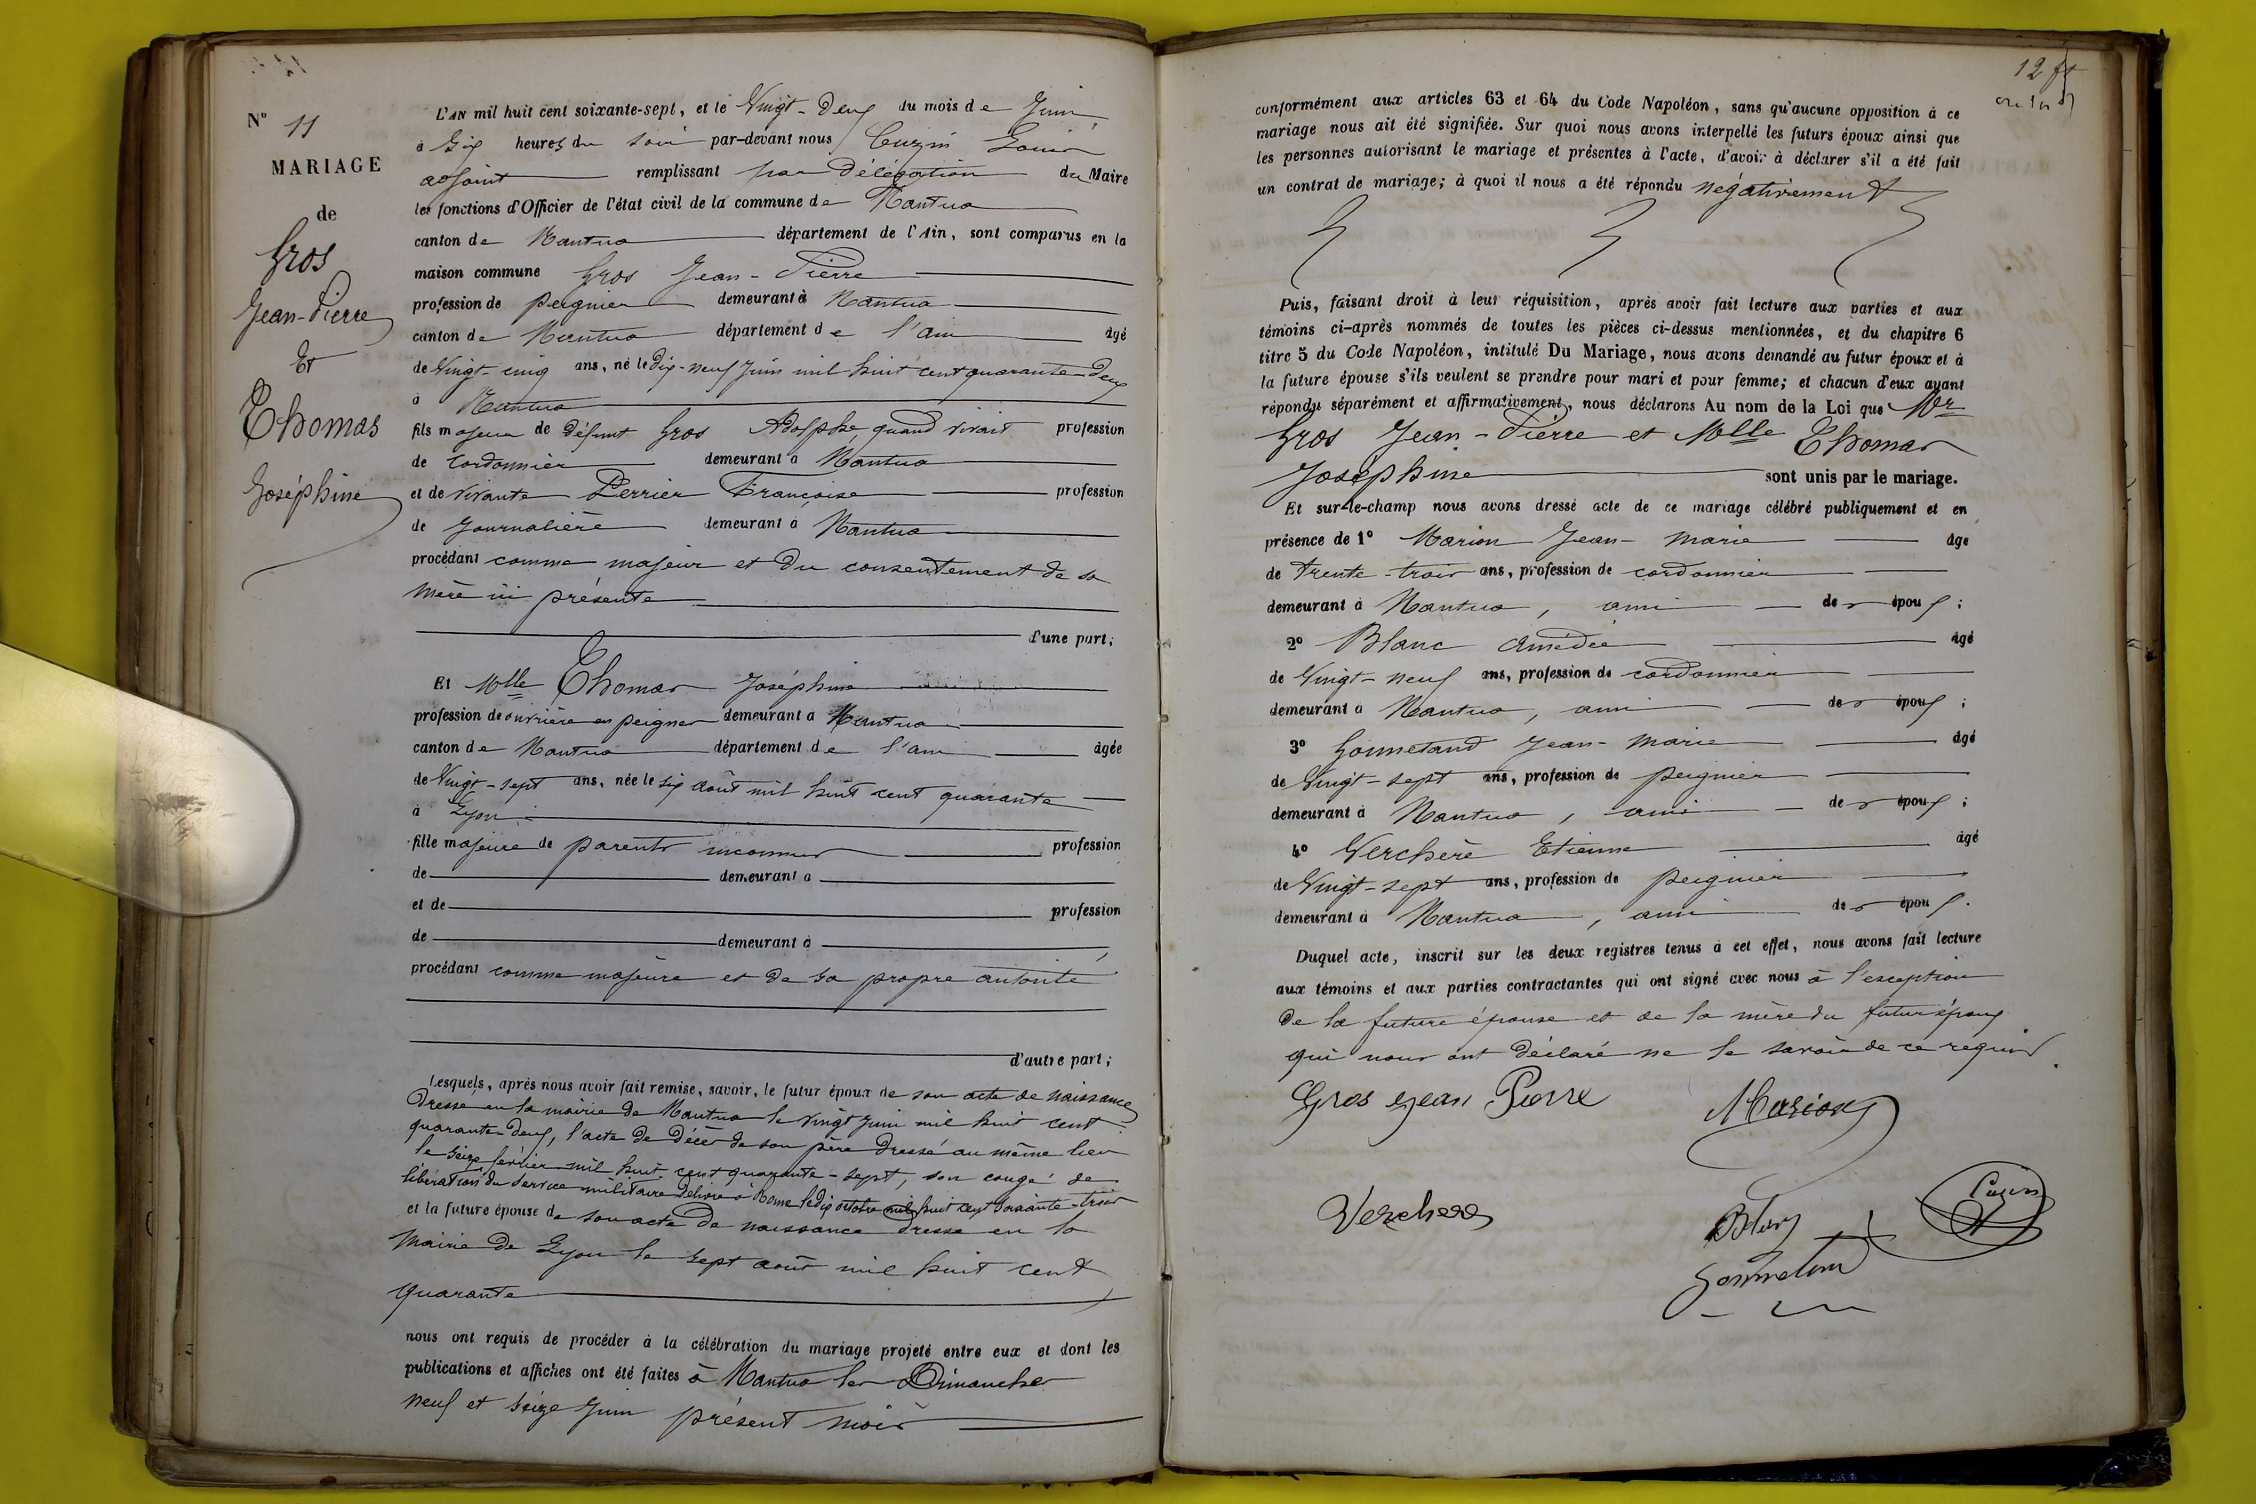 N° 11
MARIAGE
de
Gros
Jean-Pierre
Et
Thomas
Joséphine
L'AN mil huit cent soixante-sept, et le Vingt-deux du mois de Juin,
à Six heures du soir par-devant nous Cuzin Louis
adjoint remplissant par délégation du Maire
les fonctions d'Officier de l'état civil de la commune de Nantua
canton de Nantua département de l'Ain, sont comparus en la
maison commune Gros Jean-Pierre
profession de peignier demeurant à Nantua
canton de Nantua département de l'ain âgé
de Vingt-cinq ans, né le dix-neuf Juin mil huit cent quarante-deux
à Nantua
fils majeur de défunt Gros Adolphe, quand vivait profession
de cordonnier demeurant à Nantua
et de vivante Perrier Françoise profession
de Journalière demeurant à Nantua
procédant comme majeur et du consentement de sa
mère ici présente
d'une part;
Et Mlle Thomas Joséphine
profession de ouvrière en peignes demeurant à Nantua
canton de Nantua département de l'ain âgée
de Vingt-sept ans, née le six août mil huit cent quarante
à Lyon
fille majeure de parents inconnus profession
de demeurant à
et de profession
de demeurant à
procédant comme majeure et de sa propre autorité
d'autre part;
Lesquels, après nous avoir fait remise, savoir, le futur époux de son acte de naissance
dressé en la mairie de Nantua le vingt Juin mil huit cent
quarante-deux, l'acte de décès de son père dressé au même lieu
le seize février mil huit cent quarante-sept, son congé de
libération du service militaire délivré à Rome le dix octobre mil huit cent soixante-trois
et la future épouse de son acte de naissance dressé en la
Mairie de Lyon le sept août mil huit cent
quarante
nous ont requis de procéder à la célébration du mariage projeté entre eux et dont les
publications et affiches ont été faites à Nantua les Dimanches
neuf et seize Juin présent mois
12
conformément aux articles 63 et 64 du Code Napoléon, sans qu'aucune opposition à ce
mariage nous ait été signifiée. Sur quoi nous avons interpellé les futurs époux ainsi que
les personnes autorisant le mariage et présentes à l'acte, d'avoir à déclarer s'il a été fait
un contrat de mariage; à quoi il nous a été répondu négativement
Puis, faisant droit à leur réquisition, après avoir fait lecture aux parties et aux
témoins ci-après nommés de toutes les pièces ci-dessus mentionnées, et du chapitre 6
titre 5 du Code Napoléon, intitulé Du Mariage, nous avons demandé au futur époux et à
la future épouse s'ils veulent se prendre pour mari et pour femme; et chacun d'eux ayant
répondu séparément et affirmativement, nous déclarons Au nom de la Loi que Mr
Gros Jean-Pierre et Mlle Thomas
Joséphine sont unis par le mariage.
Et sur-le-champ nous avons dressé acte de ce mariage célébré publiquement et en
présence de 1° Marion Jean-Marie âgé
de trente-trois ans, profession de cordonnier
demeurant à Nantua, ami des époux;
2° Blanc Amédée âgé
de Vingt-neuf ans, profession de cordonnier
demeurant à Nantua, ami des époux;
3° Gonnetand Jean-Marie âgé
de Vingt-sept ans, profession de peignier
demeurant à Nantua, ami des époux;
4° Verchère Etienne âgé
de Vingt-sept ans, profession de peignier
demeurant à Nantua, ami des époux.
Duquel acte, inscrit sur les deux registres tenus à cet effet, nous avons fait lecture
aux témoins et aux parties contractantes qui ont signé avec nous à l'exception
de la future épouse et de la mère du futur époux
qui nous ont déclaré ne le savoir de ce requis.
Gros Jean Pierre Marion
Verchere Blanc Cuzin